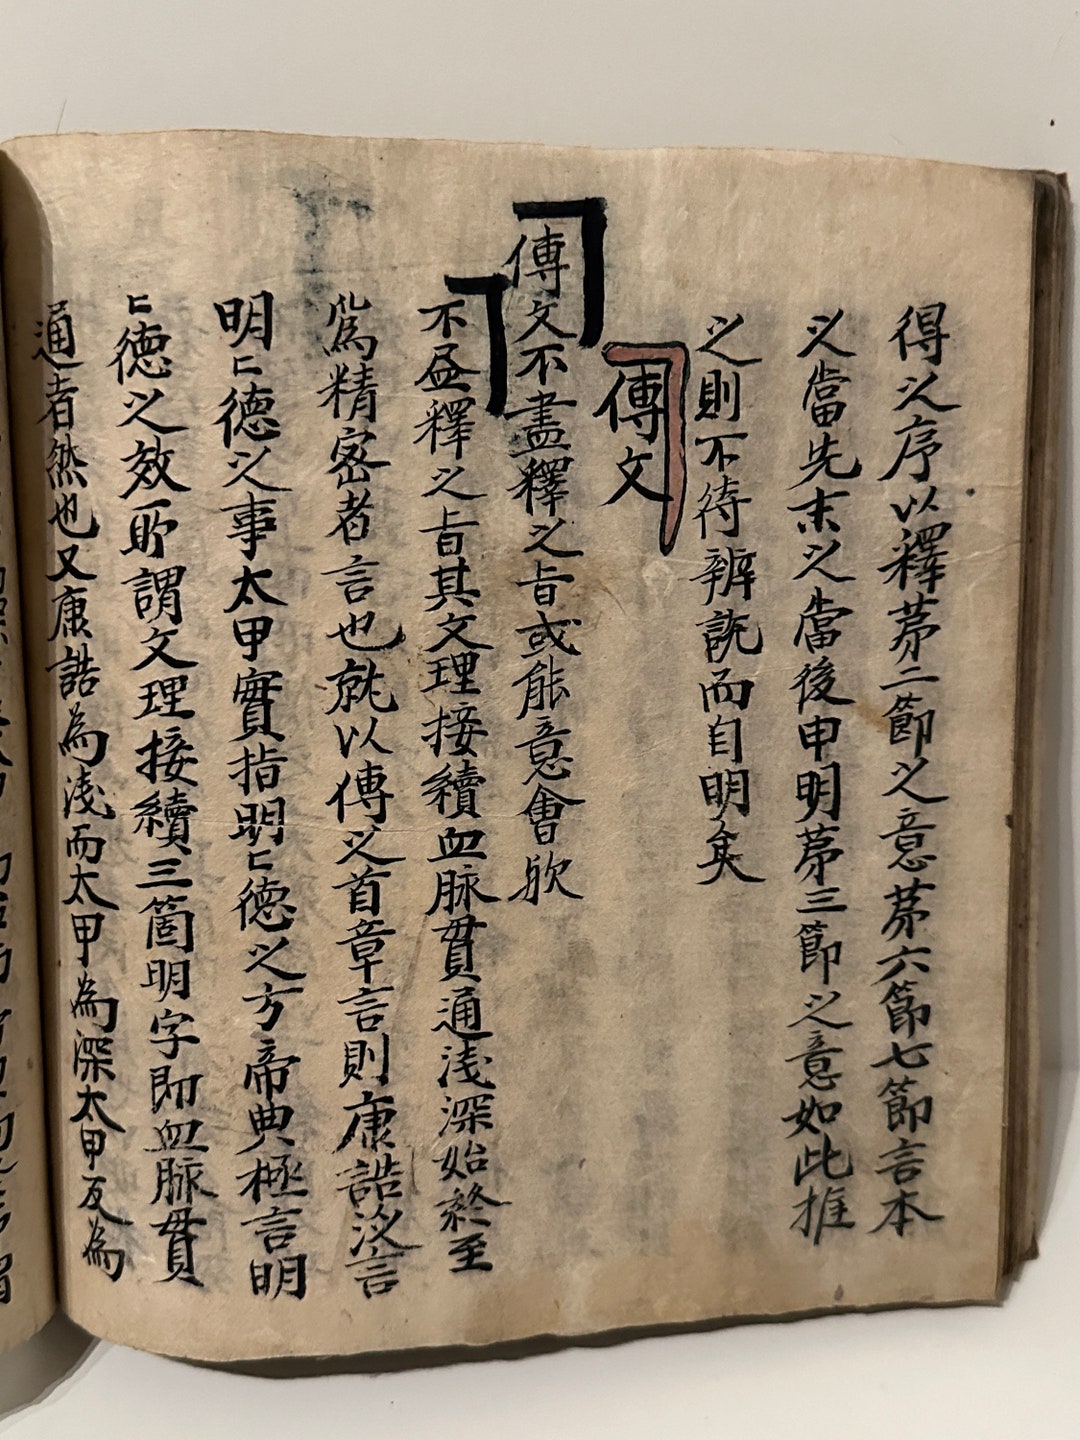 得之序以釋苐二節之意苐六節七節言本
之當先末之當後申明苐三節之意如此推
之則不待辨説而自明矣
傳文
傳文不盡釋之旨或能意會欤
不盡釋之旨其文理接續血脉貫通淺深始終至
為精密者言也就以傳之首章言則康誥汎言
明〻德之事太甲實指明〻德之方帝典極言明
〻德之效所謂文理接續三箇明字即血脉貫
通者然也又康誥為淺而太甲為深太甲反為